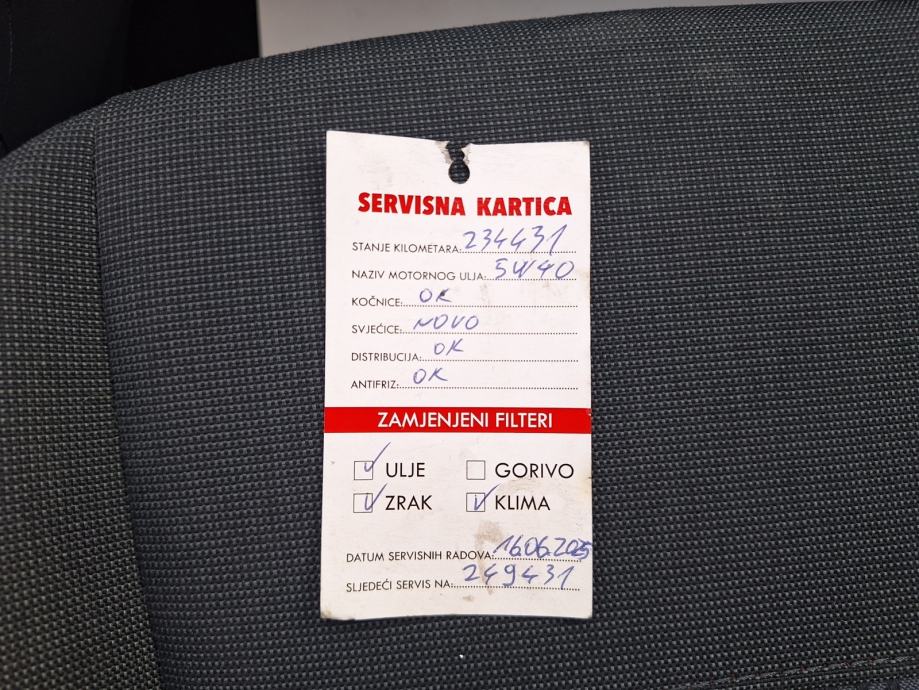 SERVISNA KARTICA
STANJE KILOMETARA: 234431
NAZIV MOTORNOG ULJA: 5W40
KOČNICE: OK
SVJEĆICE: NOVO
DISTRIBUCIJA: OK
ANTIFRIZ: OK
ZAMJENJENI FILTERI
ULJE GORIVO
ZRAK KLIMA
DATUM SERVISNIH RADOVA: 16.06.2025
SLJEDEĆI SERVIS NA: 249431